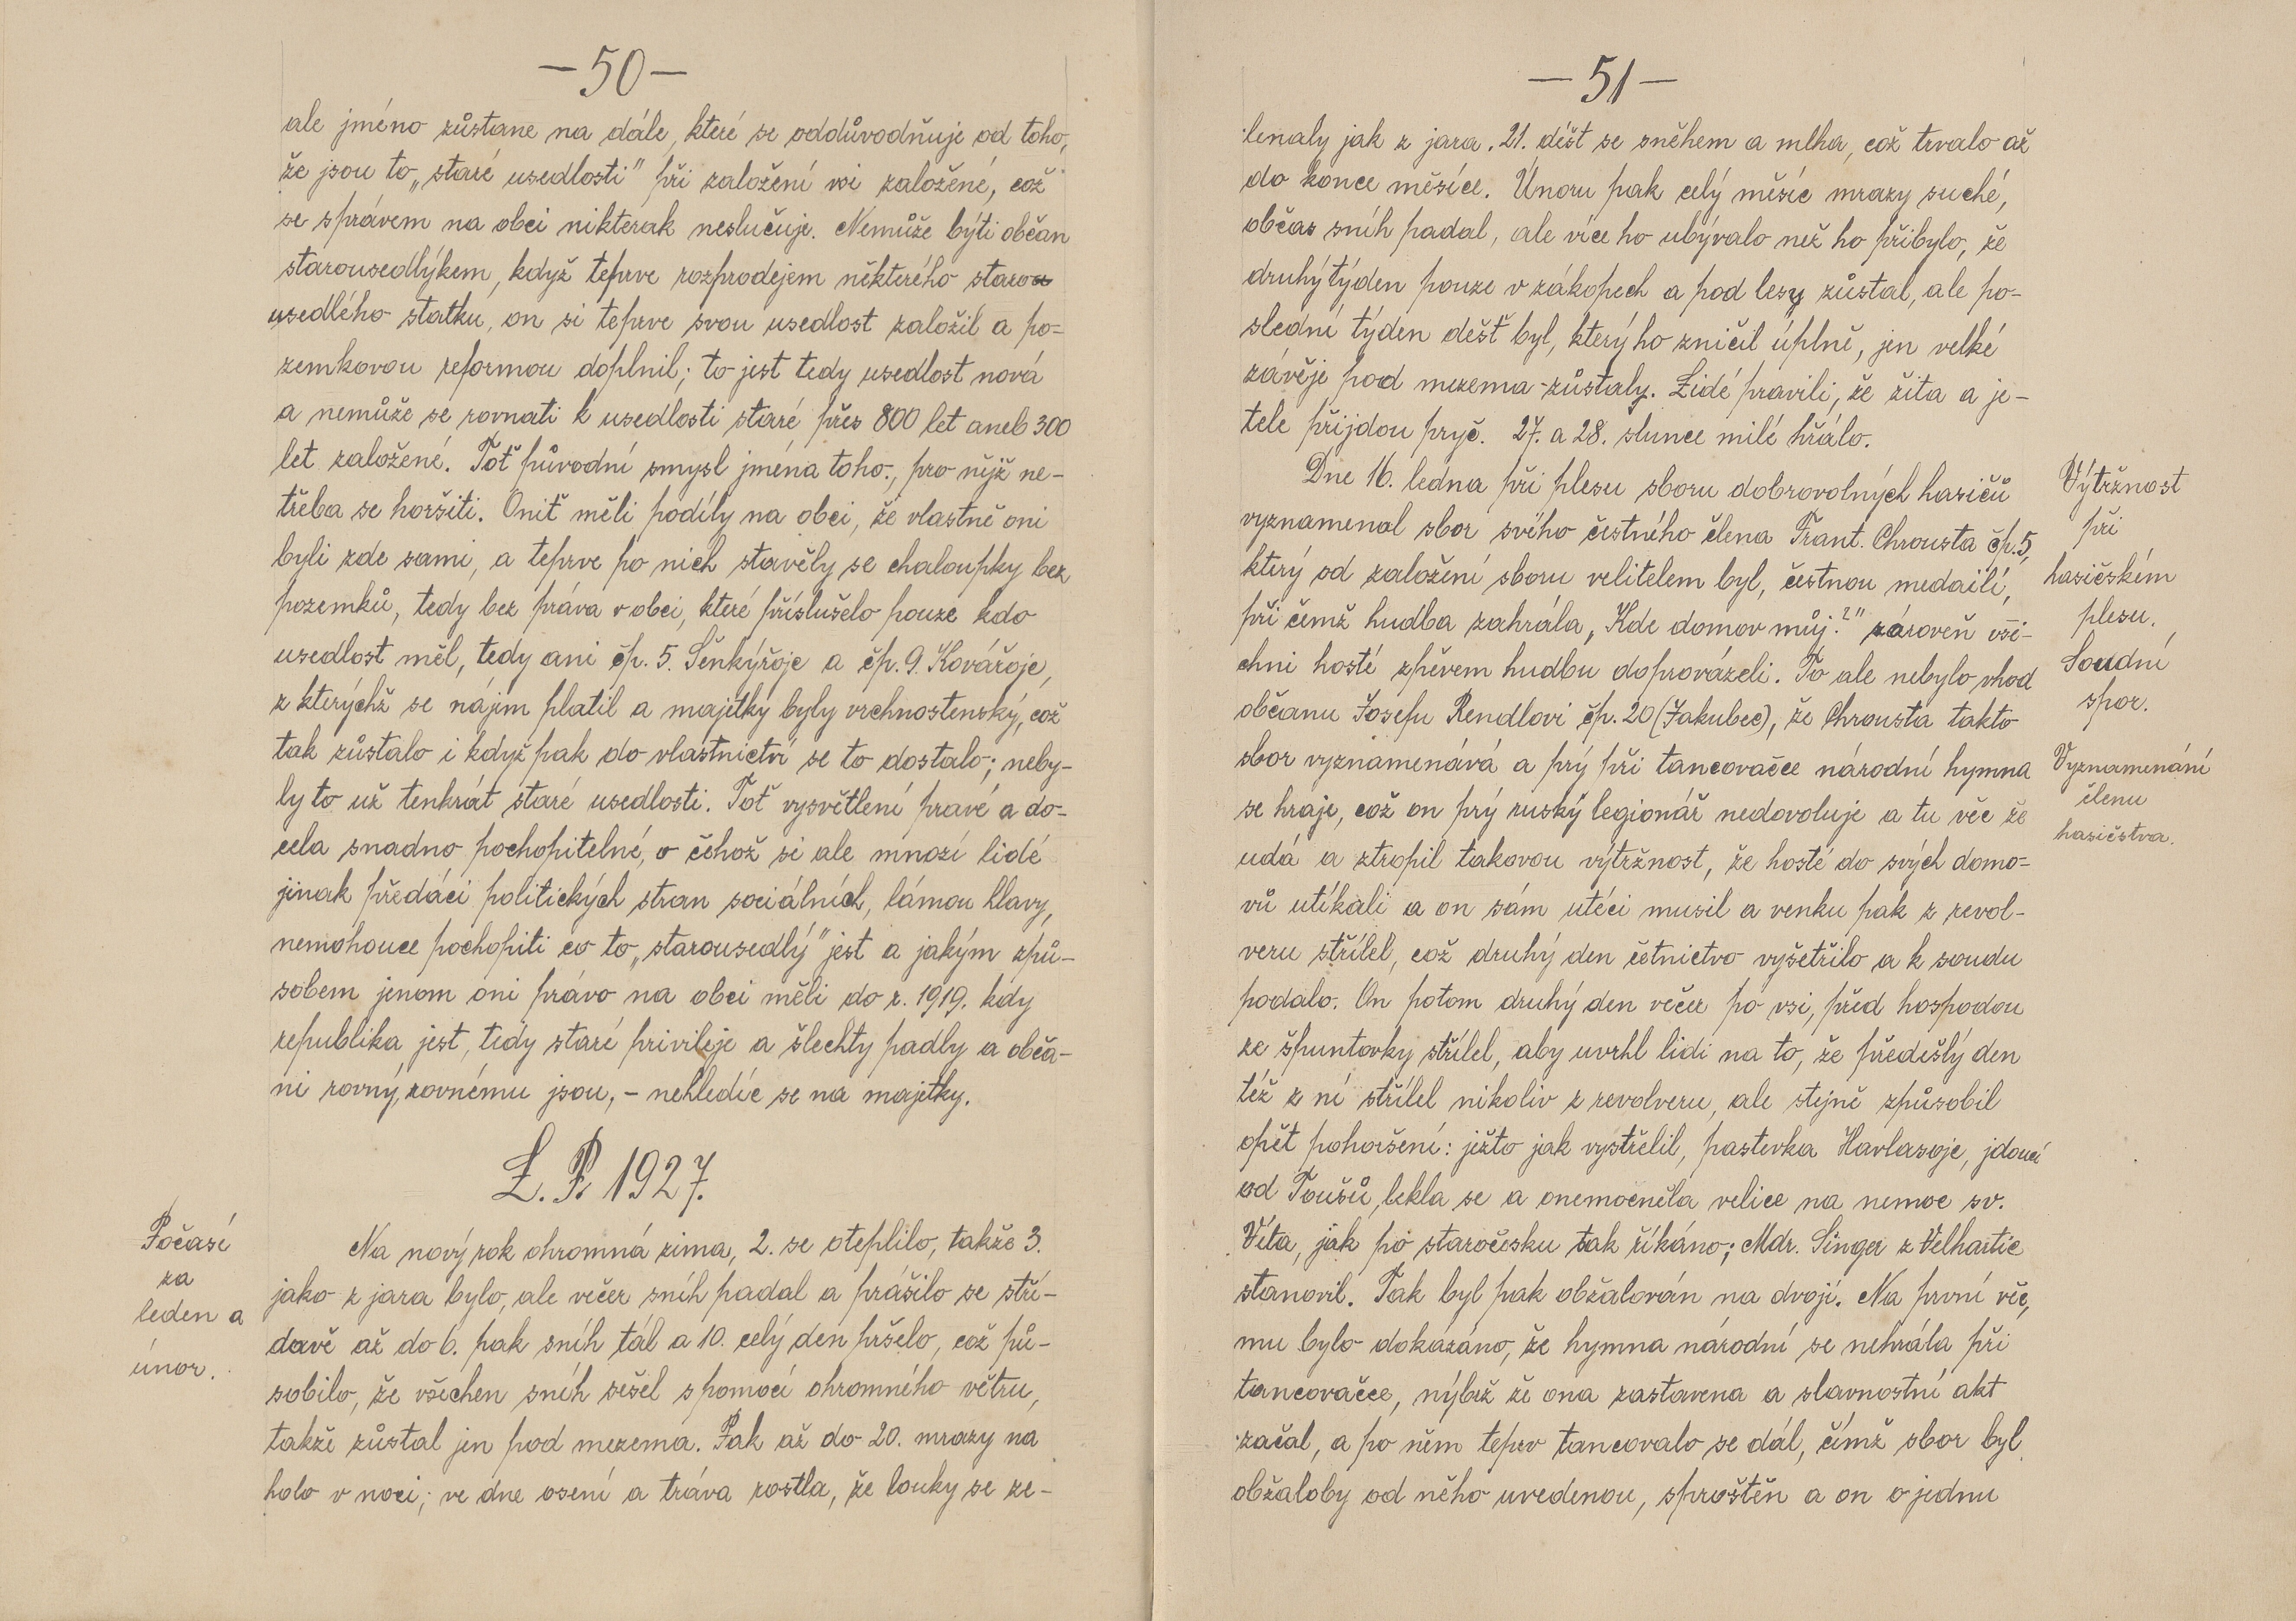 — 50 —
ale jméno zůstane na dále, které se oddůvodňuje od toho,
že jsou to „staré usedlosti" při založení vsi založené, což
se správem na obci nikterak neslučuje. Nemůže býti občan
starousedlýkem, když teprve rozprodejem některého staro
usedlého statku, on si teprve svou usedlost založil a po-
zemkovou reformou doplnil; to jest tedy usedlost nová
a nemůže se rovnati k usedlosti staré přes 800 let aneb 300
let založené. Toť původní smysl jména toho, pro nějž ne-
třeba se horšiti. Oniť měli podíly na obci, že vlastně oni
byli zde sami, a teprve po nich stavěly se chaloupky bez
pozemků, tedy bez práva v obci, které příslušelo pouze kdo
usedlost měl, tedy ani čp. 5. Šenkýřoje a čp. 9. Kovářoje,
z kterýchž se nájem platil a majetky byly vrchnostenský, což
tak zůstalo i když pak do vlastnictví se to dostalo; neby-
ly to už tenkrát staré usedlosti. Toť vysvětlení pravé a do-
cela snadno pochopitelné, o čehož si ale mnozí lidé
jinak předáci politických stran sociálních, lámou hlavy,
nemohouce pochopiti co to „starousedlý" jest a jakým způ-
sobem jenom oni právo na obci měli do r. 1919. kdy
republika jest, tedy staré privileje a šlechty padly a obča-
ni rovný, rovnému jsou, – nehledíc se na majetky.
L. P. 1927.
Počasí
za
leden a
únor.
Na nový rok ohromná zima, 2. se oteplilo, takže 3.
jako z jara bylo, ale večer sníh padal a prášilo se stří-
davě až do 6. pak sníh tál a 10. celý den pršelo, což pů-
sobilo, že všechen sníh sešel s pomocí ohromného větru,
takže zůstal jen pod mezema. Pak až do 20. mrazy na
holo v noci; ve dne osení a tráva rostla, že louky se ze-
— 51 —
lenaly jak z jara. 21. déšt se sněhem a mlha, což trvalo až
do konce měsíce. Únoru pak celý měsíc mrazy suché,
občas sníh padal, ale více ho ubývalo než ho přibylo, že
druhý týden pouze v zákopech a pod lesy zůstal, ale po-
slední týden déšť byl, který ho zničil úplně, jen velké
závěje pod mezema zůstaly. Lidé pravili, že žita a je-
tele přijdou pryč. 27. a 28. slunce milé hřálo.
Dne 16. ledna při plesu sboru dobrovolných hasičů
vyznamenal sbor svého čestného člena Frant. Chrousta čp. 5,
který od založení sboru velitelem byl, čestnou medailí,
při čemž hudba zahrála „Kde domov můj?" zároveň vši-
chni hosté zpěvem hudbu doprovázeli. To ale nebylo vhod
občanu Josefu Rendlovi čp. 20 (Jakubec), že Chrousta takto
sbor vyznamenává a prý při tancovačce národní hymna
se hraje, což on prý ruský legionář nedovoluje a tu věc že
udá a ztropil takovou výtržnost, že hosté do svých domo-
vů utíkali a on sám utéci musil a venku pak z revol-
veru střílel, což druhý den četnictvo vyšetřilo a k soudu
podalo. On potom druhý den večer po vsi, před hospodou
ze špuntovky střílel, aby uvrhl lidi na to, že předešlý den
též z ní střílel nikoliv z revolveru, ale stejně způsobil
opět pohoršení: ježto jak vystřelil, pastevka Havlasoje, jdoucí
od Toušů, lekla se a onemocněla velice na nemoc sv.
Víta, jak po staročesku tak říkáno; Mdr. Singer z Velhartic
stanovil. Tak byl pak obžalován na dvojí. Na první věc,
mu bylo dokázáno, že hymna národní se nehrála při
tancovačce, nýbrž že ona zastavena a slavnostní akt
začal, a po něm teprv tancovalo se dál, čímž sbor byl
obžaloby od něho uvedenou, sproštěn a on o jednu
Výtržnost
při
hasičském
plesu.
Soudní
spor.
Vyznamenání
členu
hasičstva.